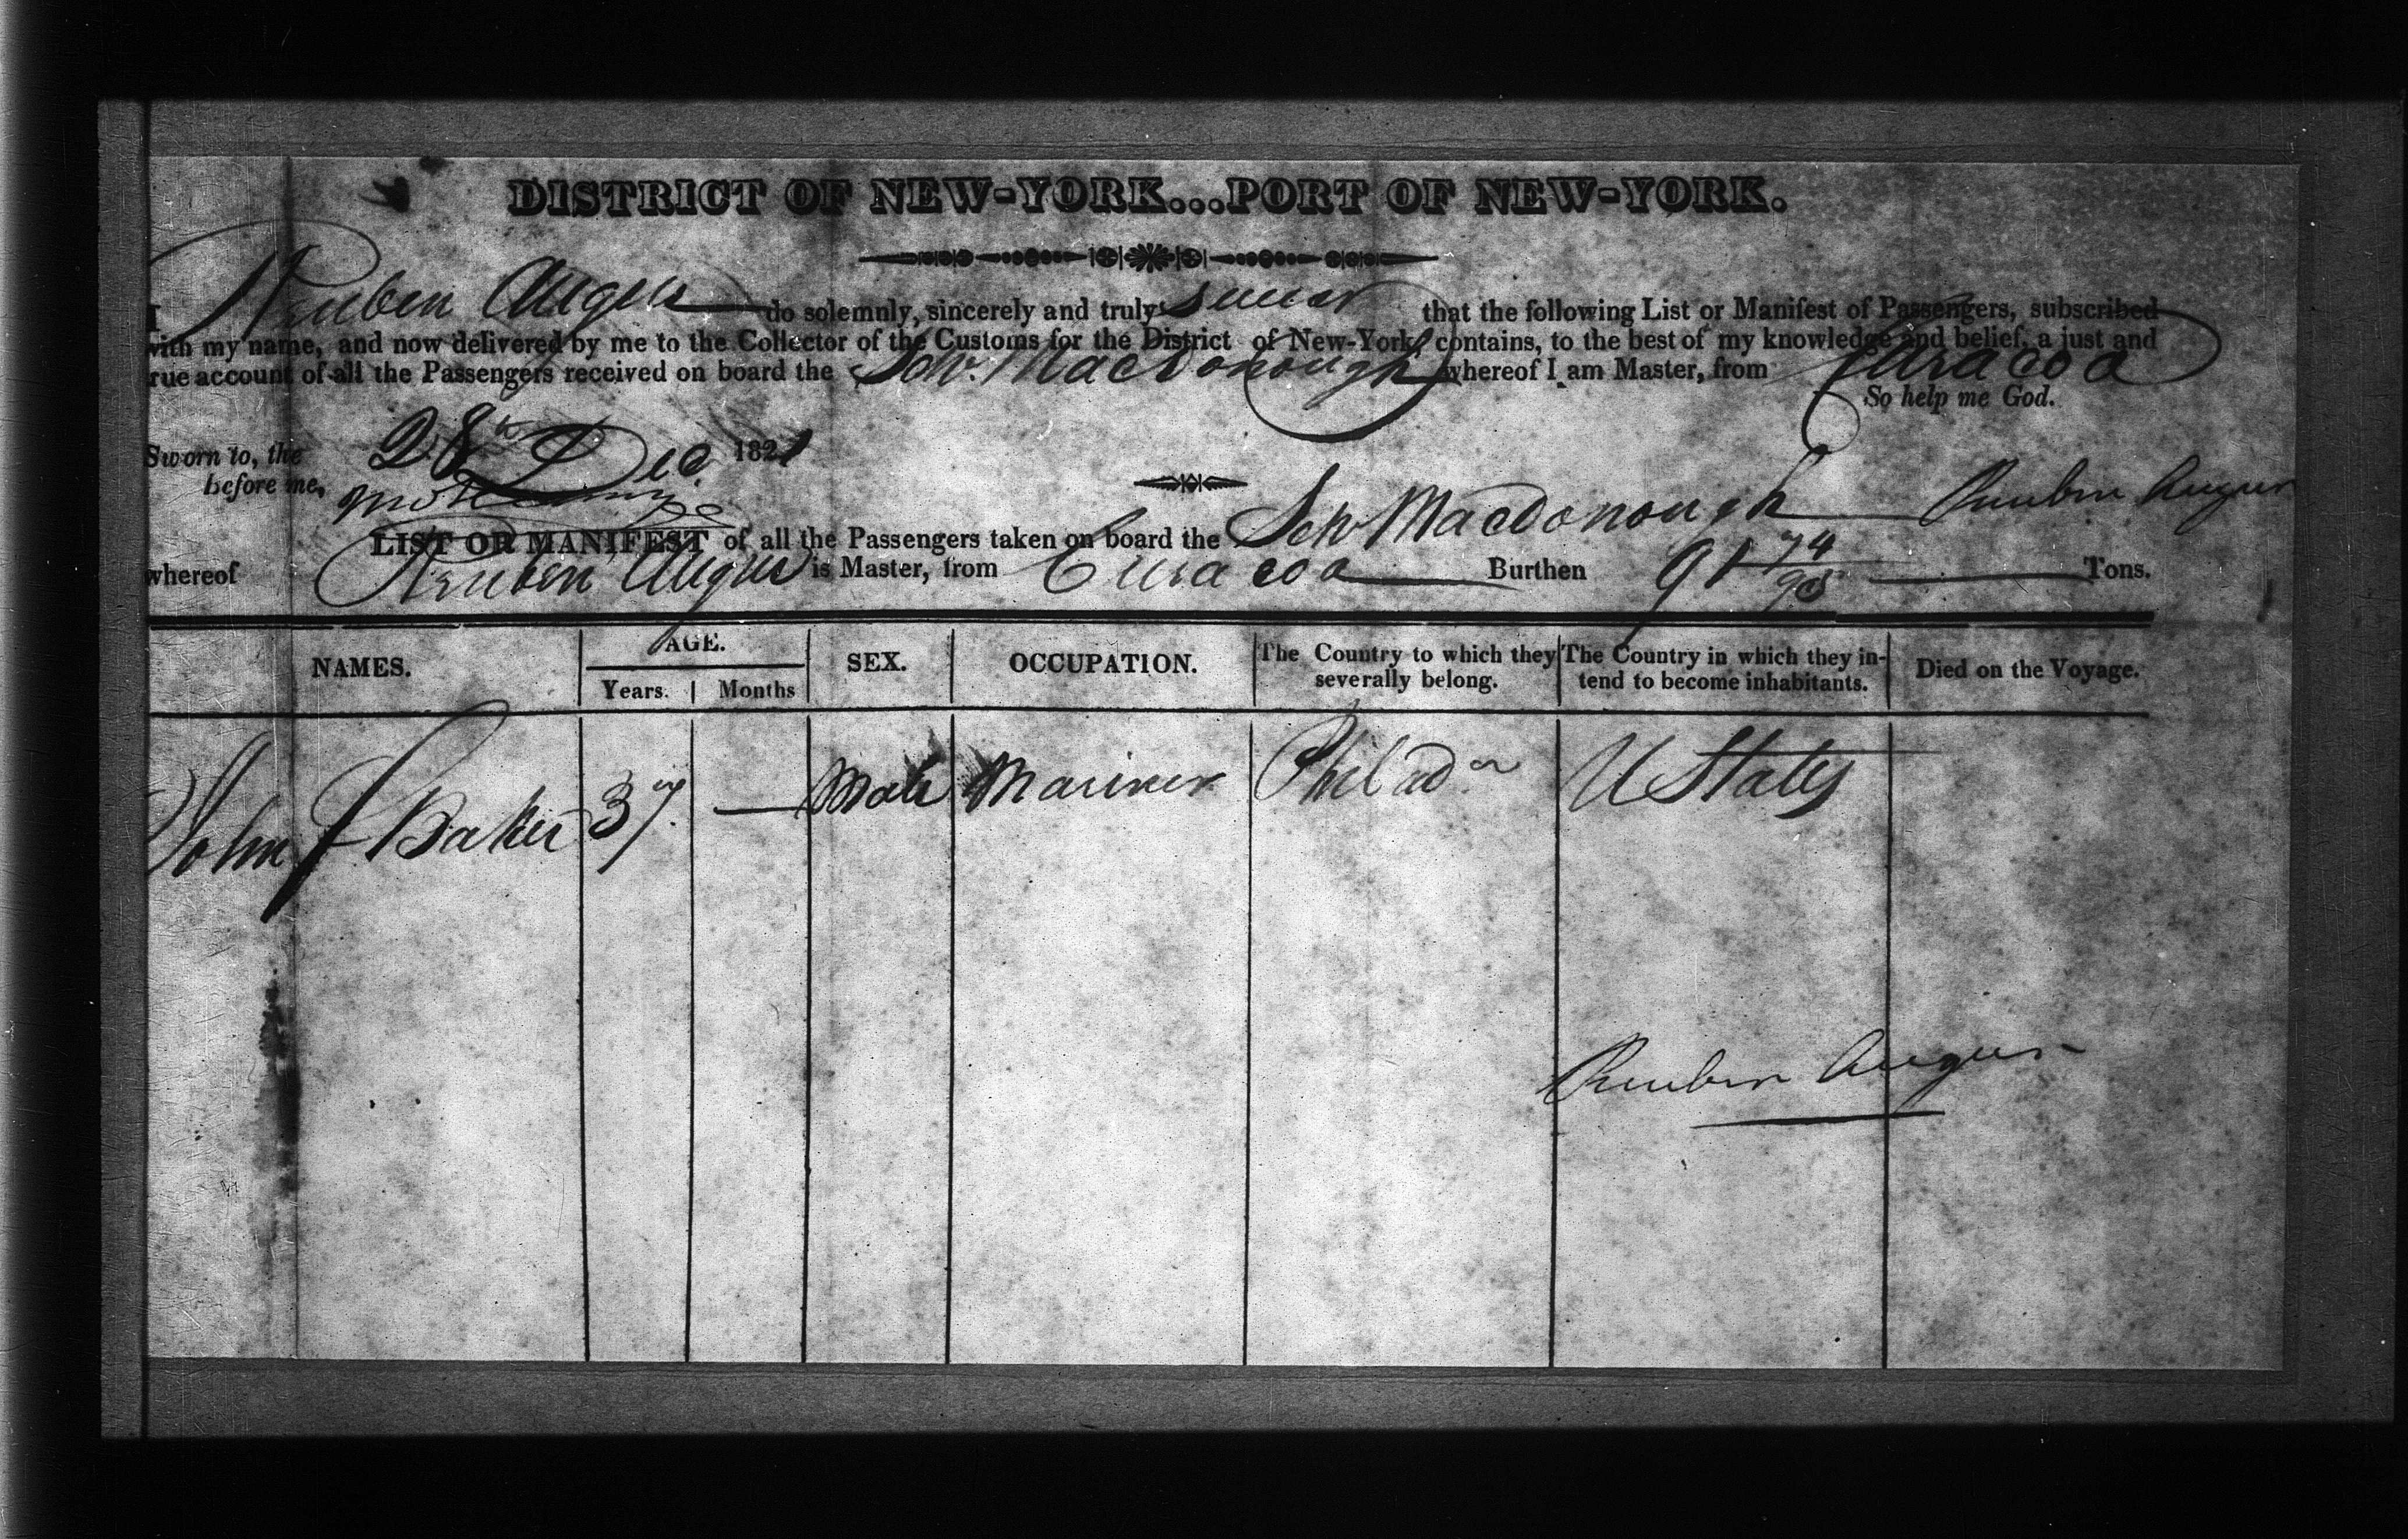 DISTRICT OF NEW-YORK...PORT OF NEW-YORK.
I Reuben Augur do solemnly, sincerely and truly swear that the following List or Manifest of Passengers, subscribed
with my name, and now delivered by me to the Collector of the Customs for the District of New-York, contains, to the best of my knowledge and belief, a just and
rue account of all the Passengers received on board the Schr. MacDonough whereof I am Master, from Curacoa
So help me God.
Sworn to, the 28th Dec. 1821
before me,
Reuben Augur
LIST OR MANIFEST of all the Passengers taken on board the Schr MacDonough
whereof Reuben Augur is Master, from Curacoa Burthen 91 74/95 Tons.
NAMES. AGE. SEX. OCCUPATION. The Country to which they severally belong. The Country in which they intend to become inhabitants. Died on the Voyage.
Years. Months
John J Baker 37. — Male Mariner Philada U States
Reuben Augur